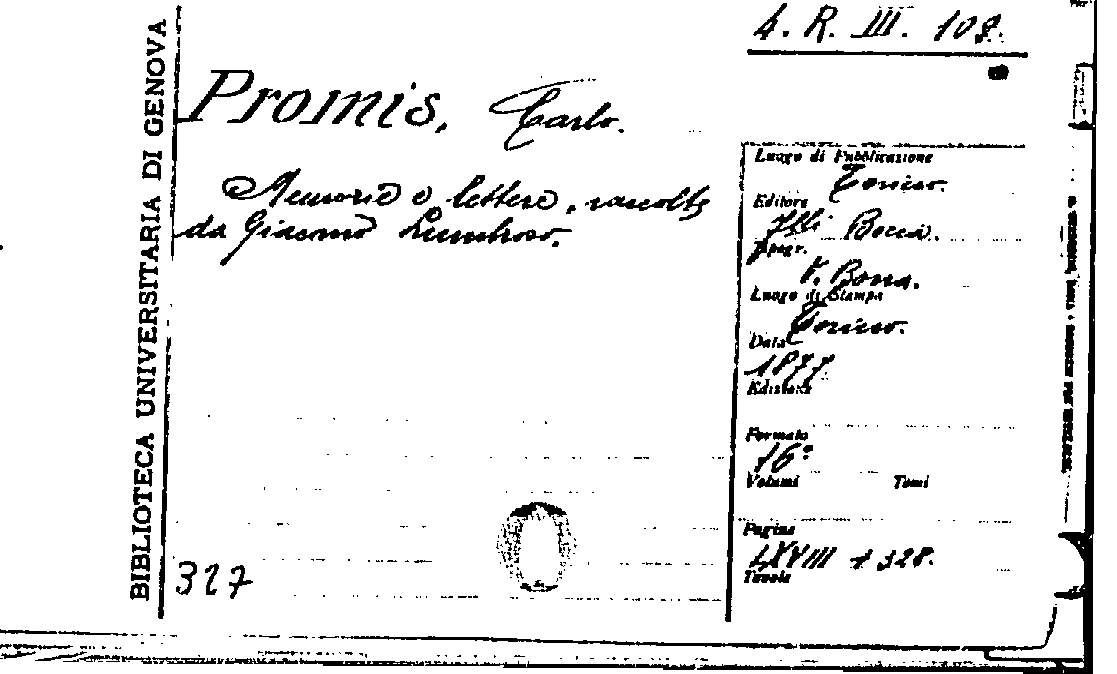 4. R. III. 108.
BIBLIOTECA UNIVERSITARIA DI GENOVA
Promis, Carlo.
Memorie e lettere, raccolte
da Giacomo Lumbroso.
327
Luogo di Pubblicazione
Torino.
Editore
Flli Bocca.
Tipogr.
V. Bona.
Luogo di Stampa
Torino.
Data
1877
Edizione
Formato
16°
Volumi Tomi
Pagine
LXVIII + 328.
Tavole